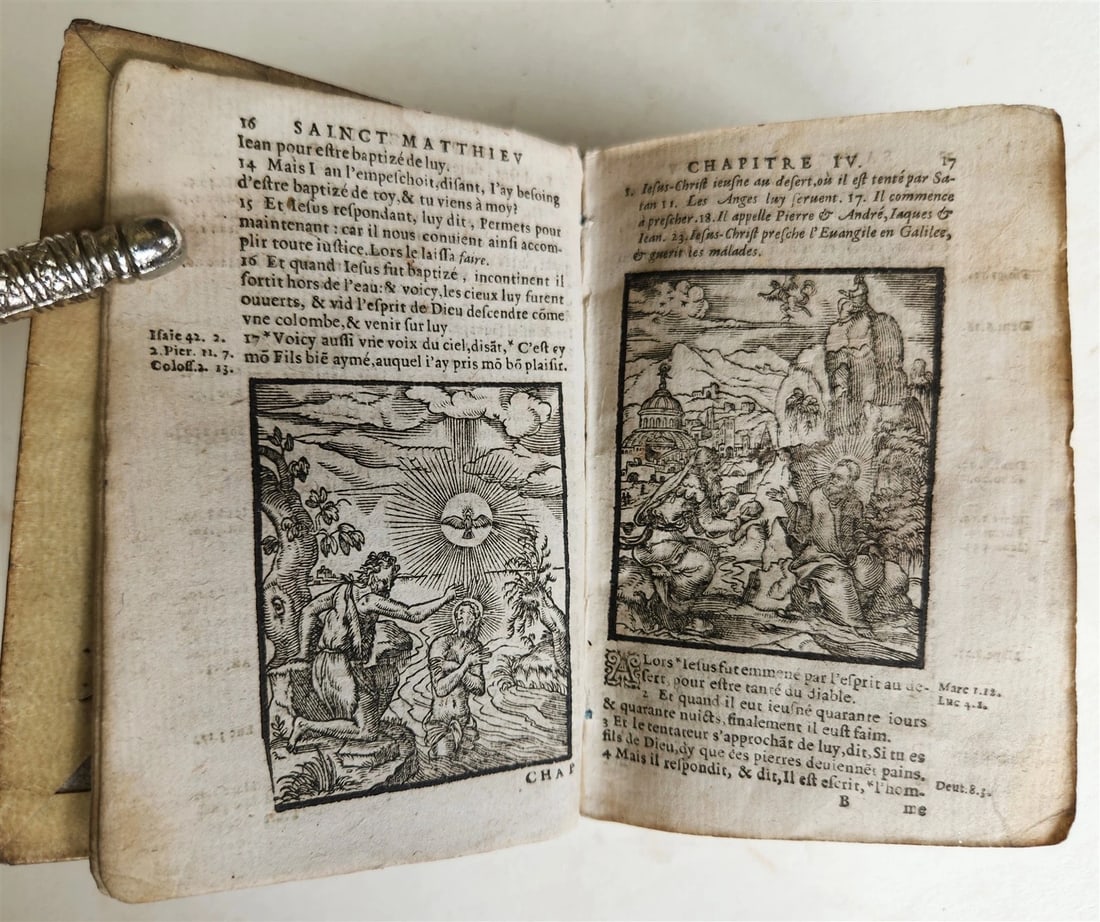 16 SAINCT MATTHIEV
Iean pour eſtre baptizé de luy.
14 Mais I an l'empeſchoit, diſant, I'ay beſoing
d'eſtre baptizé de toy, & tu viens à moy?
15 Et Ieſus reſpondant, luy dit, Permets pour
maintenant : car il nous conuient ainſi accom-
plir toute iuſtice. Lors le laiſſa faire.
16 Et quand Ieſus fut baptizé, incontinent il
ſortit hors de l'eau: & voicy, les cieux luy furent
ouuerts, & vid l'eſprit de Dieu deſcendre cõme
vne colombe, & venir ſur luy.
Iſaie 42. 2.
2. Pier. 11. 7.
Coloſſ. 2. 13.
17 *Voicy auſſi vne voix du ciel, diſãt, * C'eſt cy
mõ Fils biẽ aymé, auquel i'ay pris mõ bõ plaiſir.
CHAP
CHAPITRE IV. 17
1. Ieſus-Chriſt ieuſne au deſert, où il eſt tenté par Sa-
tan 11. Les Anges luy ſeruent. 17. Il commence
à preſcher. 18. Il appelle Pierre & André, Iaques &
Iean. 23. Ieſus-Chriſt preſche l'Euangile en Galilee,
& guerit les malades.
ALors * Ieſus fut emmené par l'eſprit au de-
ſert, pour eſtre tanté du diable.
2 Et quand il eut ieuſné quarante iours
& quarante nuicts, finalement il euſt faim.
3 Et le tentateur s'approchãt de luy, dit, Si tu es
fils de Dieu, dy que ces pierres deuiennẽt pains.
4 Mais il reſpondit, & dit, Il eſt eſcrit, *l'hom-
Marc 1.12.
Luc 4.1.
Deut. 8.3.
B me